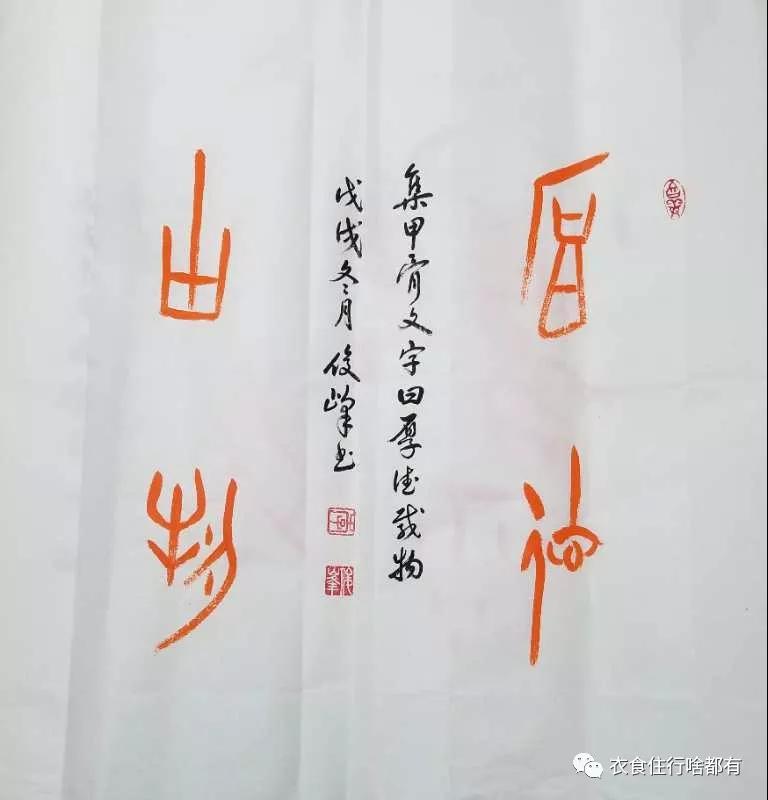 厚德
载物
集甲骨文字曰厚德载物
戊戌冬月俊峰书
俊峰
衣食住行啥都有